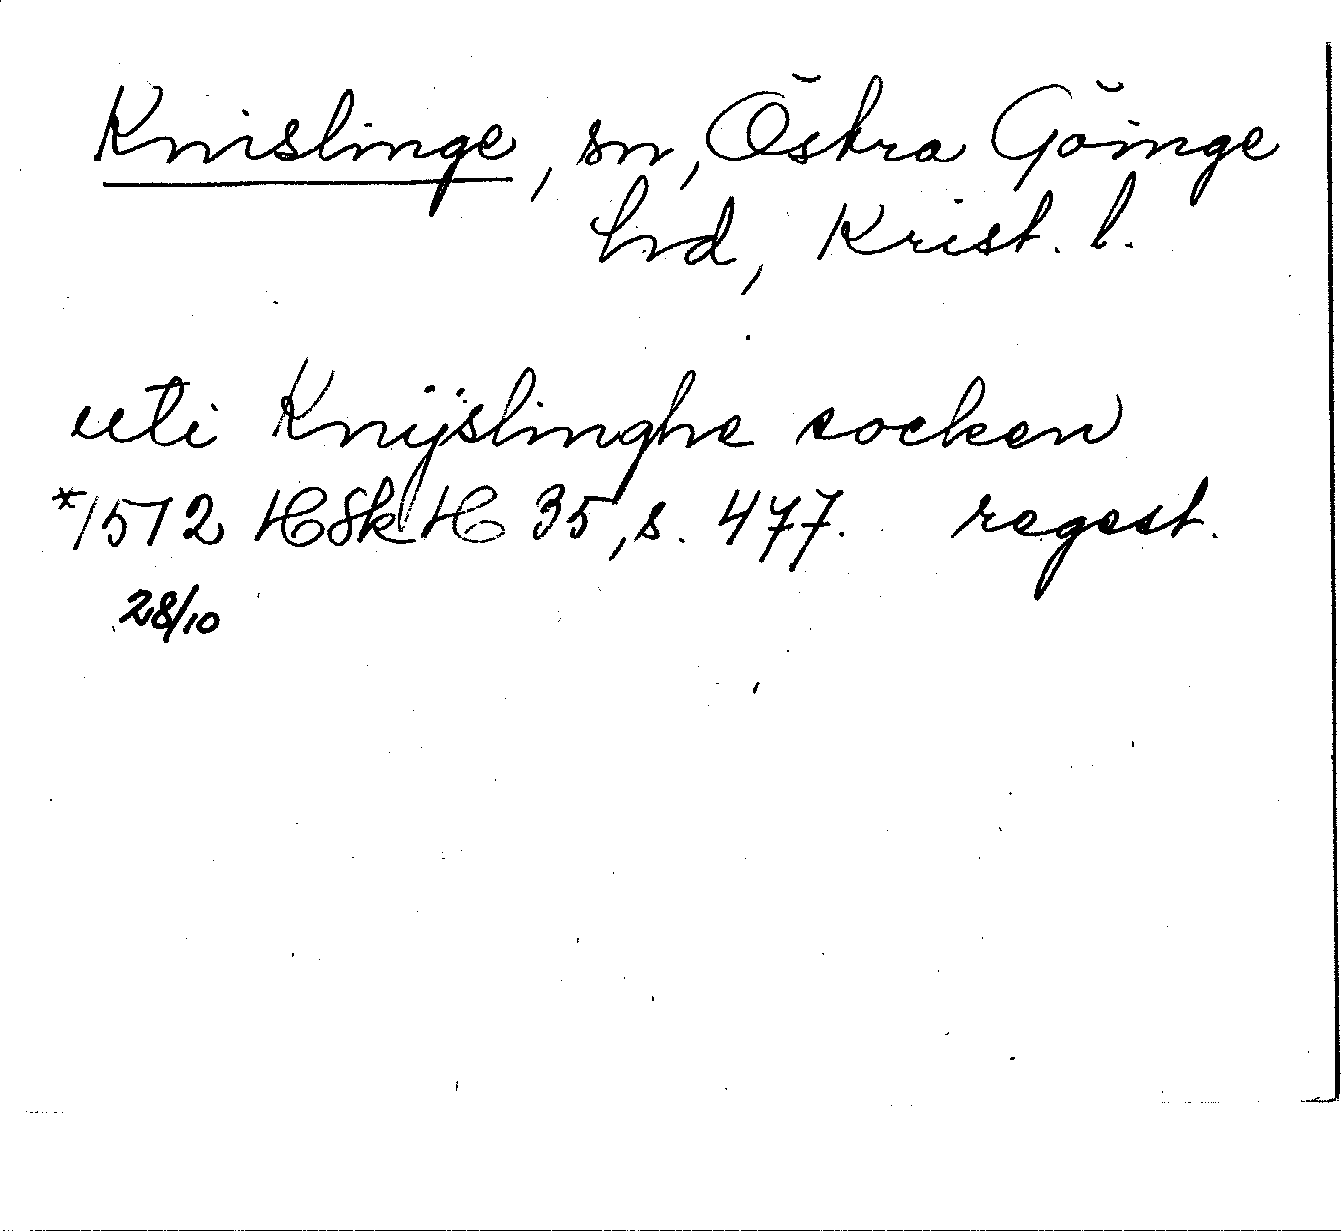 Knislinge, sn, Östra Göinge
hd, Krist. l.
uti Knijslinghe socken
*1572 HSk H 35, s. 477. regest.
28/10